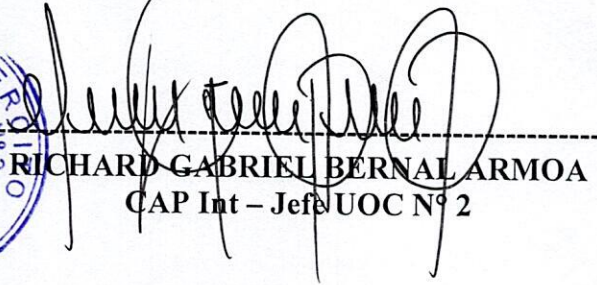 RICHARD GABRIEL BERNAL ARMOA
CAP Int – Jefe UOC Nº 2